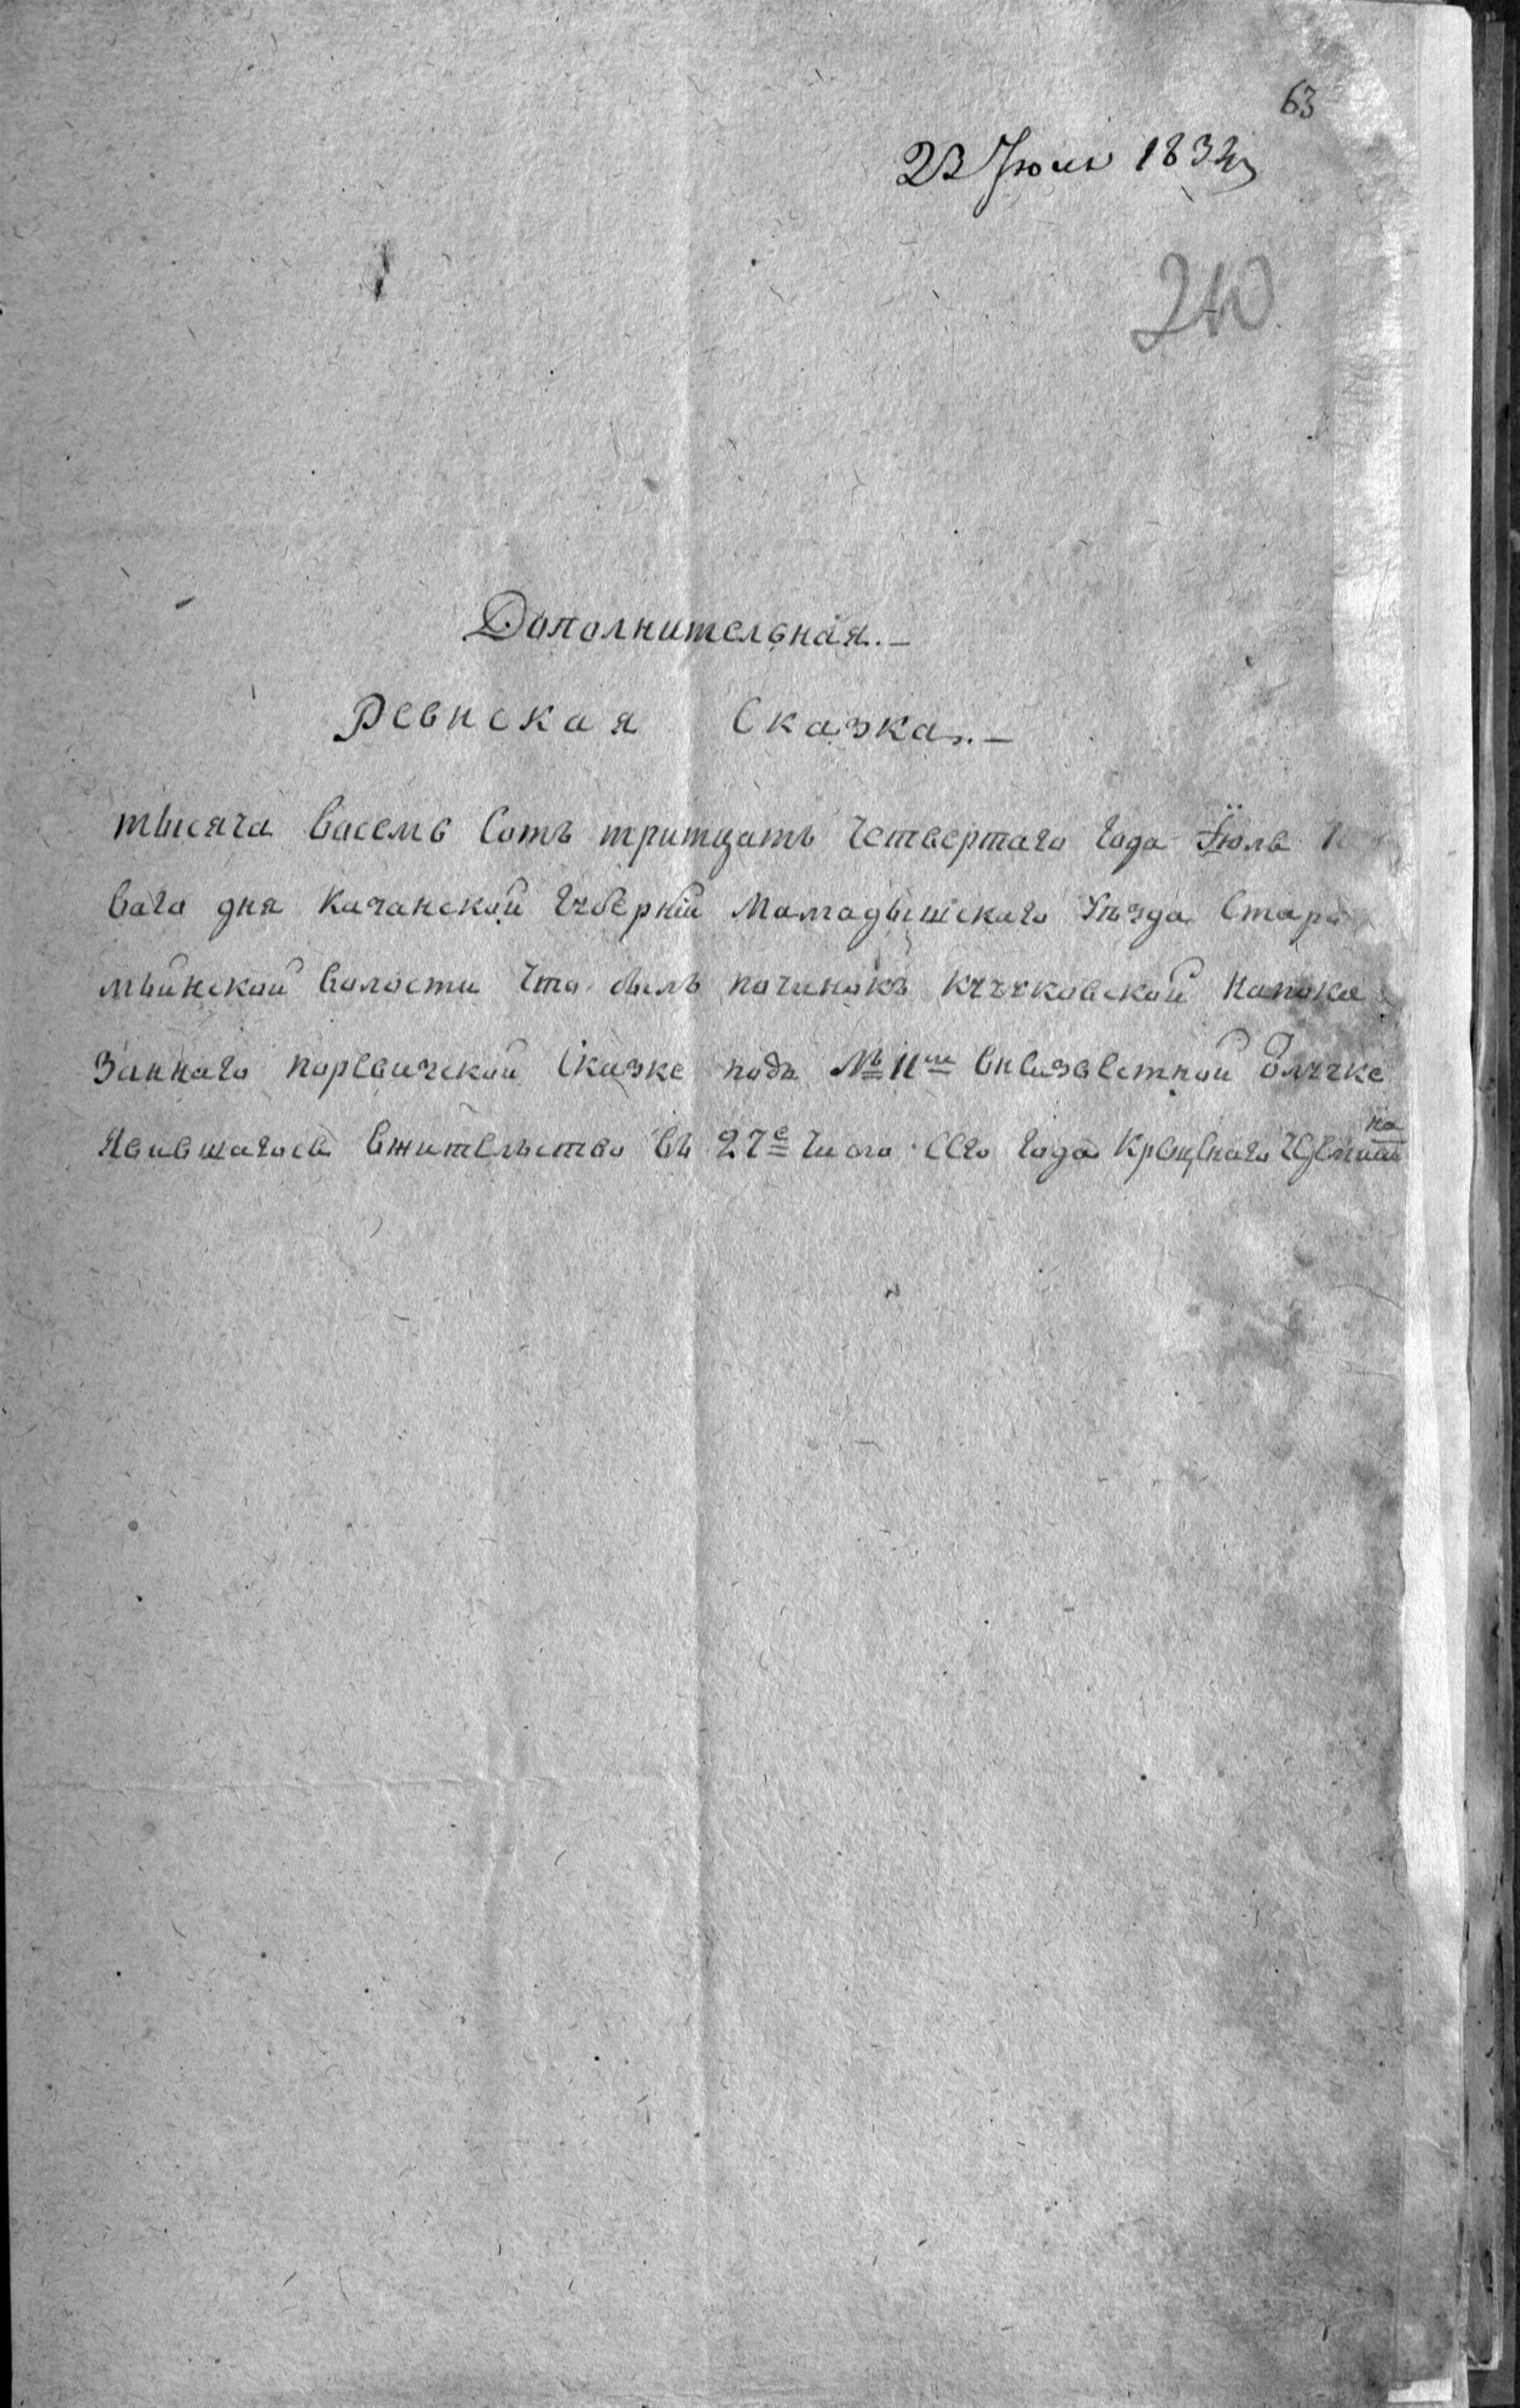 63
23 Июля 1834
240
Дополнительная.—
Ревиская Сказка.—
тысяча васемь Сотъ тритцать Четвертаго Года Июля
ваго дня Казанской Губерніи Мамадышскаго Уѣзда Старо
мьинской Воласти что былъ починокъ Кучуковской
заннаго поревиской Сказке подъ № 11мъ
Явившагося вжительство въ 27е Число Сего года Крещенаго